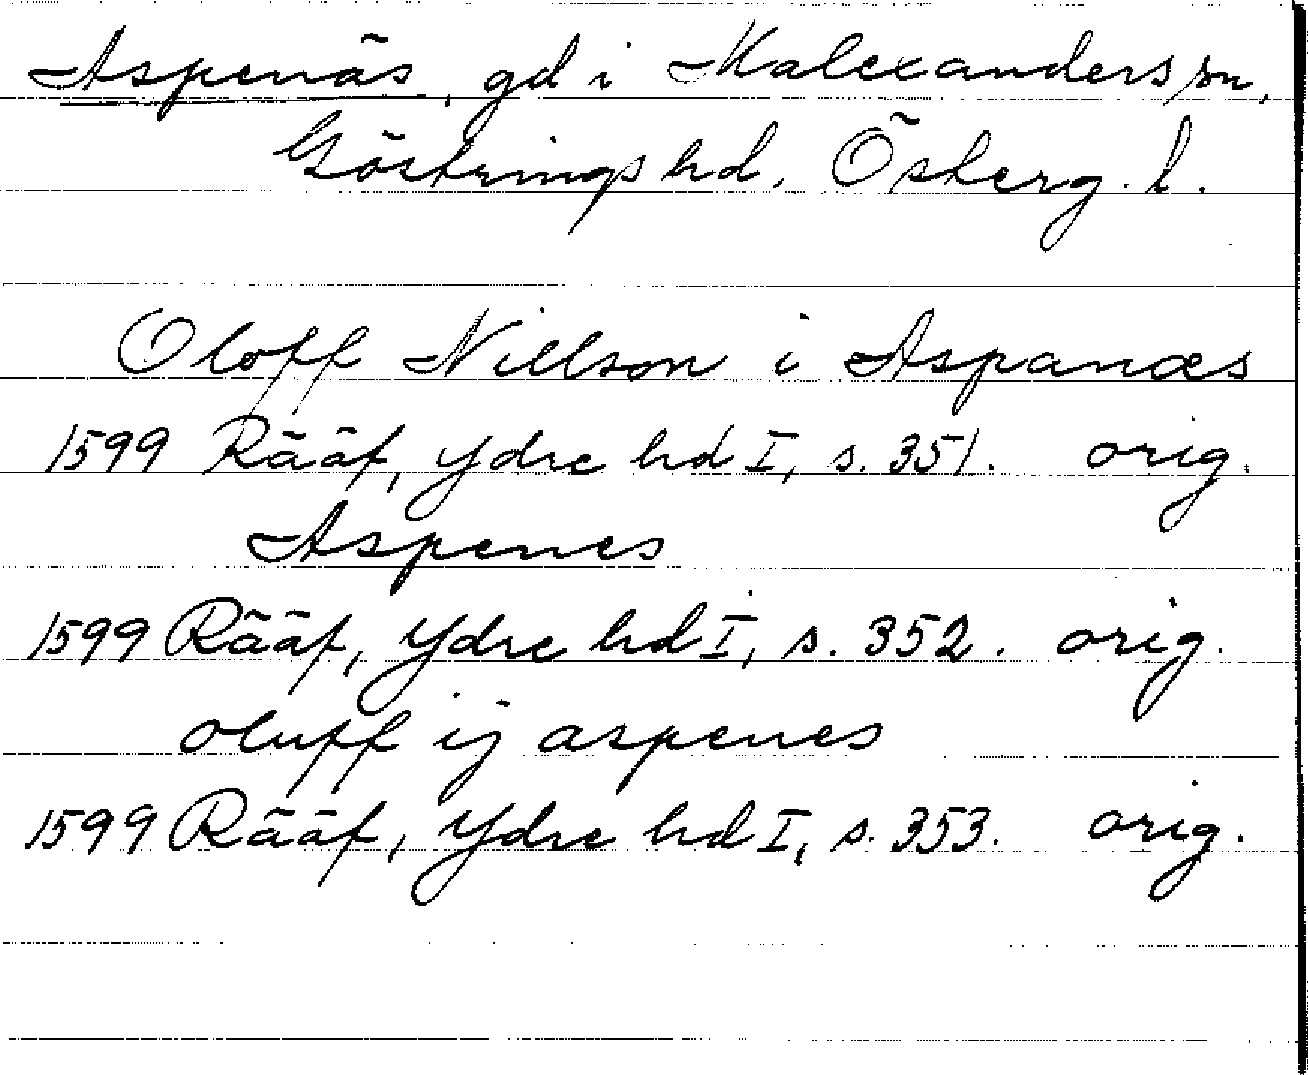 Aspenäs, gd i Malexanders sn,
Göstrings hd, Österg. l.
Oloff Nillson i Aspanæs
1599 Rääf, Ydre hd I, s. 351. orig.
Aspenes
1599 Rääf, Ydre hd I, s. 352. orig.
oluff ij aspenes
1599 Rääf, Ydre hd I, s. 353. orig.